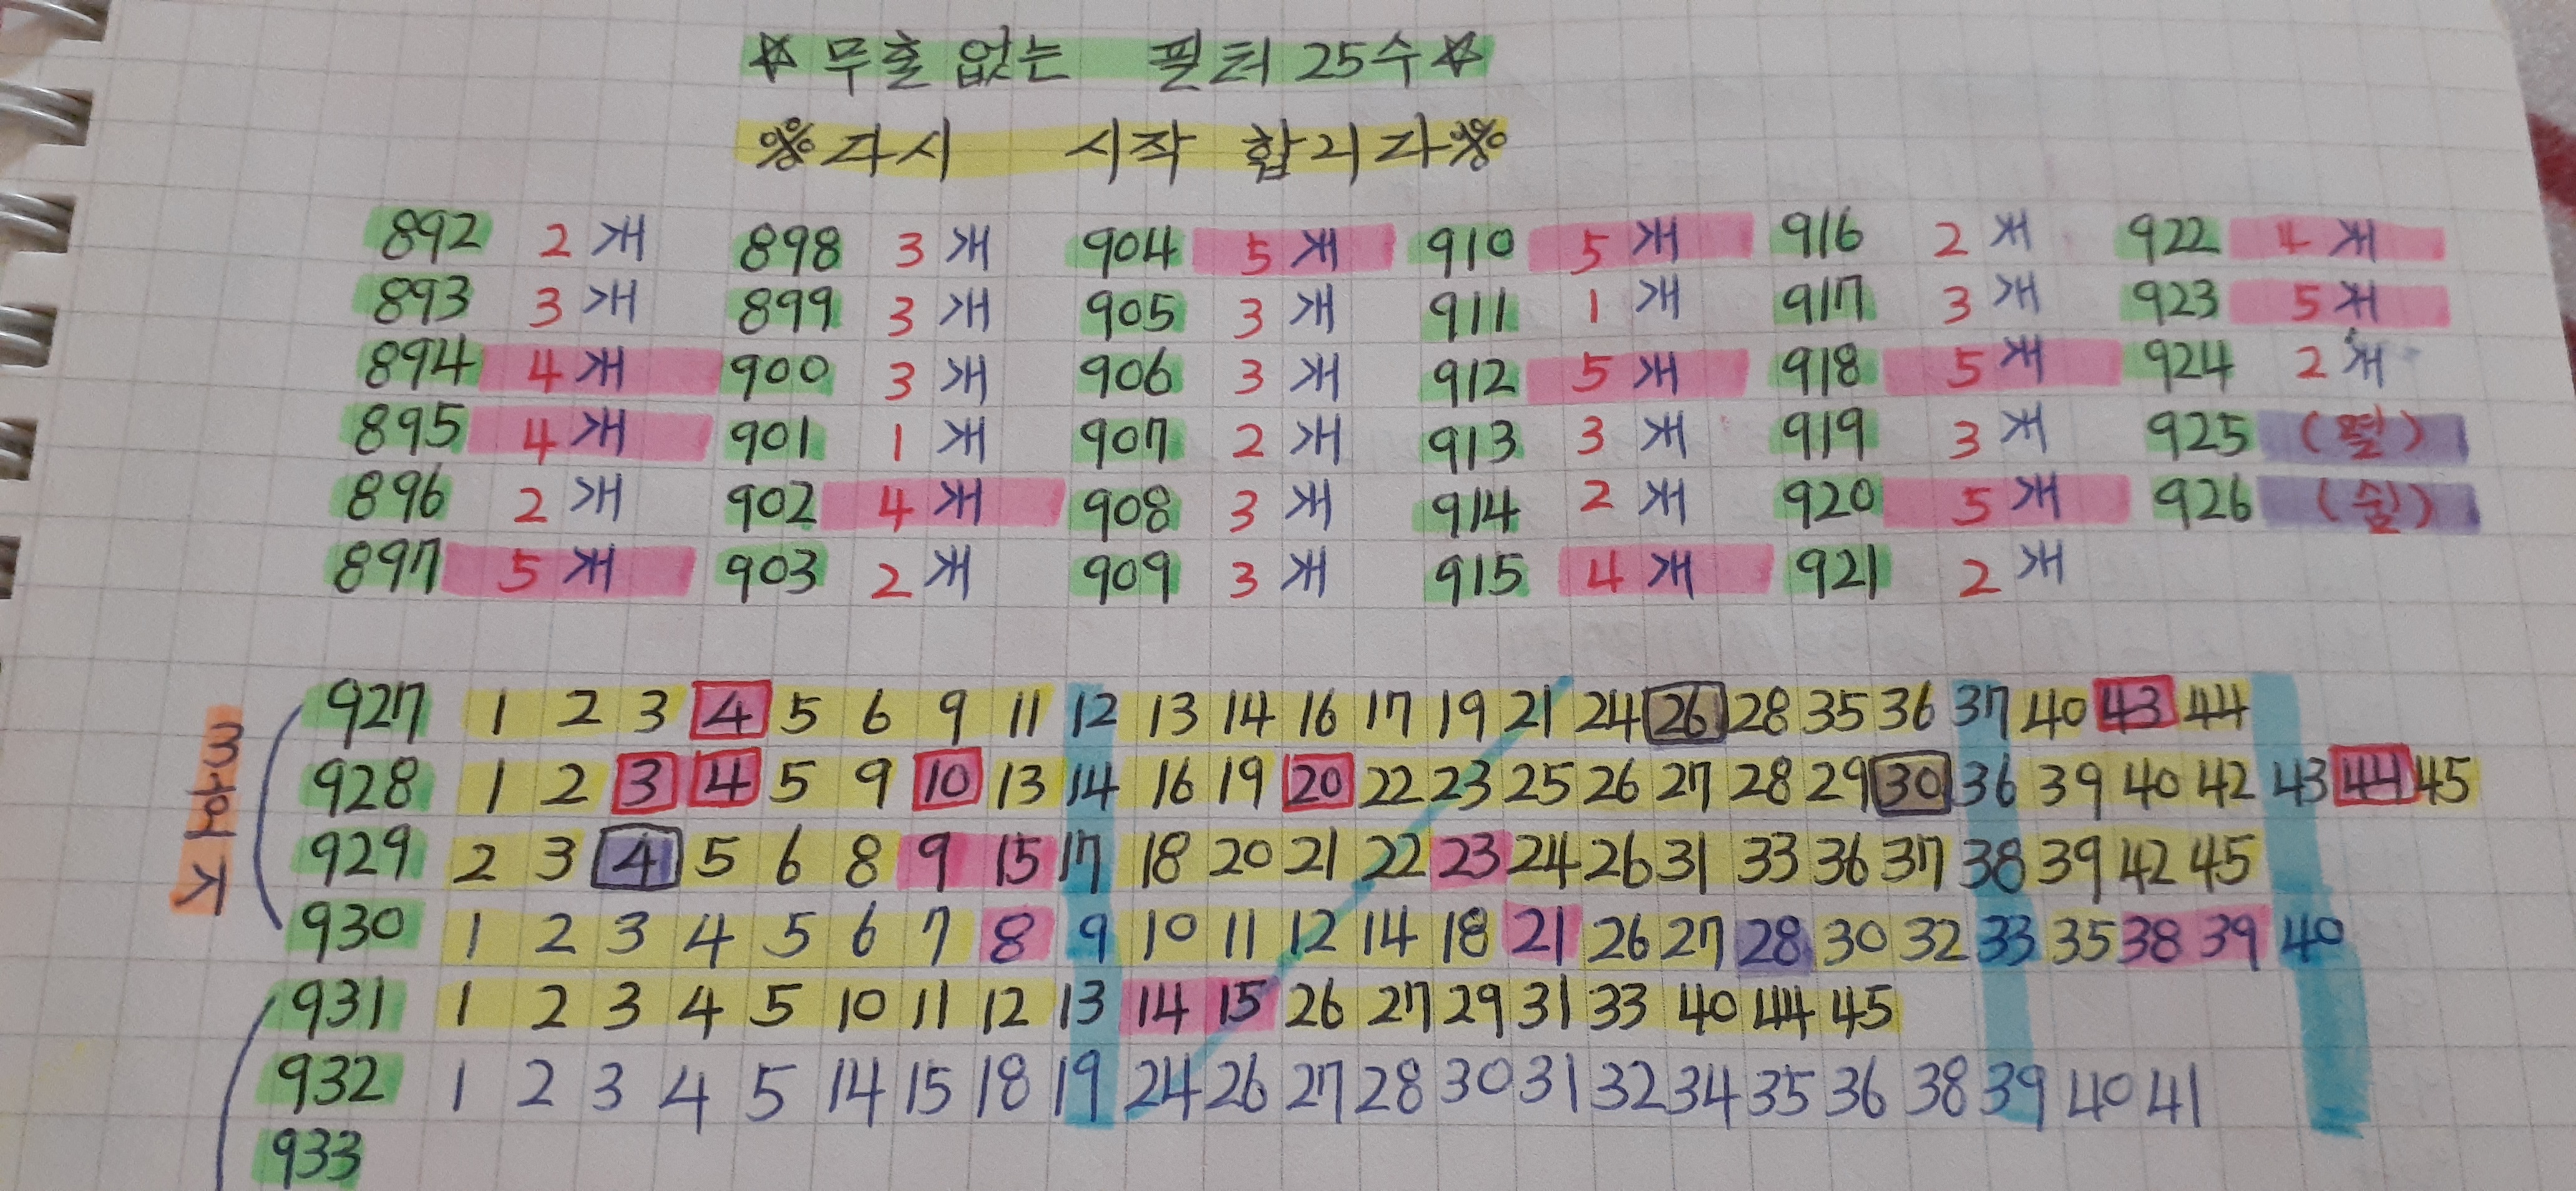 ☆ 무출 없는 필터 25수 ☆
※ 다시 시작 합니다 ※
892 2개 898 3개 904 5개 910 5개 916 2개 922 4개
893 3개 899 3개 905 3개 911 1개 917 3개 923 5개
894 4개 900 3개 906 3개 912 5개 918 5개 924 2개
895 4개 901 1개 907 2개 913 3개 919 3개 925 (펄)
896 2개 902 4개 908 3개 914 2개 920 5개 926 (쉼)
897 5개 903 2개 909 3개 915 4개 921 2개
927 1 2 3 4 5 6 9 11 12 13 14 16 17 19 21 24 26 28 35 36 37 40 43 44
928 1 2 3 4 5 9 10 13 14 16 19 20 22 23 25 26 27 28 29 30 36 39 40 42 43 44 45
929 2 3 4 5 6 8 9 15 17 18 20 21 22 23 24 26 31 33 36 37 38 39 42 45
930 1 2 3 4 5 6 7 8 9 10 11 12 14 18 21 26 27 28 30 32 33 35 38 39 40
931 1 2 3 4 5 10 11 12 13 14 15 26 27 29 31 33 40 44 45
932 1 2 3 4 5 14 15 18 19 24 26 27 28 30 31 32 34 35 36 38 39 40 41
933